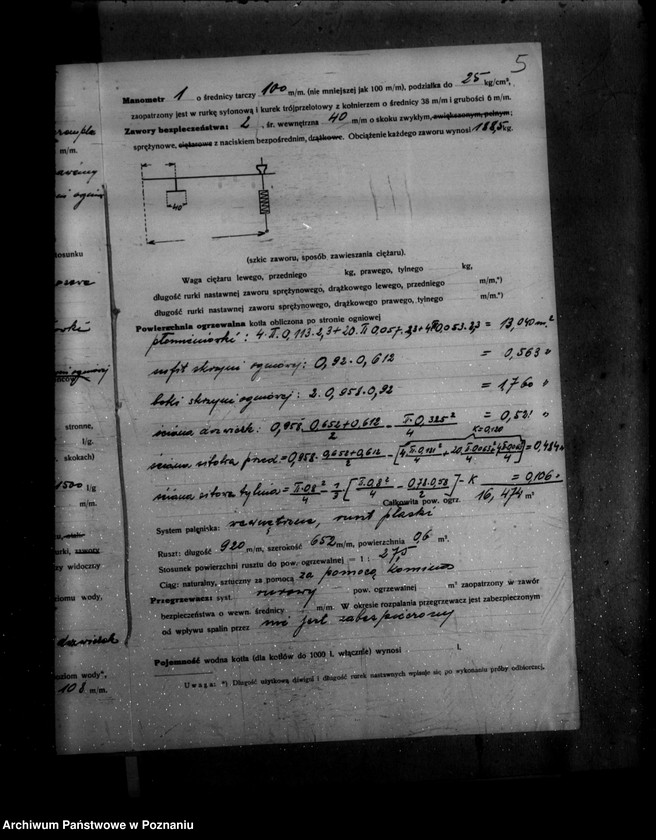 5
Manometr 1 o średnicy tarczy 100 m/m. (nie mniejszej jak 100 m/m), podziałka do 25 kg/cm²,
zaopatrzony jest w rurkę syfonową i kurek trójprzelotowy z kołnierzem o średnicy 38 m/m i grubości 6 m/m.
Zawory bezpieczeństwa: 2, śr. wewnętrzna 40 m/m o skoku zwykłym, zwiększonym, pełnym;
sprężynowe, ciężarowe z naciskiem bezpośrednim, drążkowe. Obciążenie każdego zaworu wynosi 188,5 kg.
40
(szkic zaworu, sposób zawieszania ciężaru).
Waga ciężaru lewego, przedniego kg, prawego, tylnego kg,
długość rurki nastawnej zaworu sprężynowego, drążkowego lewego, przedniego m/m,*)
długość rurki nastawnej zaworu sprężynowego, drążkowego prawego, tylnego m/m.*)
Powierzchnia ogrzewalna kotła obliczona po stronie ogniowej
płomieniówki: 4.π.0,113.2,3+20.π.0,057.2,3+48.0,053.2,3 = 13,040 m²
sufit skrzyni ogniowej: 0,92.0,612 = 0,563 "
boki skrzyni ogniowej: 2.0,958.0,92 = 1,760 "
ściana drzwiczek: 0,958 0,652+0,612 / 2 - π.0,325² / 4 = 0,521 "
K=0,120
ściana sitowa przed = 0,958. 0,652+0,612 / 2 = 0,484 "
ściana sitowa tylna = π.0,8² / 4 - 1/3 [π.0,8² / 4 - 0,78.0,58 / 2] - K = 0,106 "
Całkowita pow. ogrz. 16,474 m²
System paleniska: wewnętrzne, ruszt płaski
Ruszt: długość 920 m/m, szerokość 652 m/m, powierzchnia 0,6 m².
Stosunek powierzchni rusztu do pow. ogrzewalnej = 1 : 27,5
Ciąg: naturalny, sztuczny za pomocą za pomocą komina
Przegrzewacz: syst. rurowy pow. ogrzewalnej m² zaopatrzony w zawór
bezpieczeństwa o wewn. średnicy m/m. W okresie rozpalania przegrzewacz jest zabezpieczonym
od wpływu spalin przez nie jest zabezpieczony
Pojemność wodna kotła (dla kotłów do 1000 l. włącznie) wynosi l.
Uwaga: *) Długość użytkową dźwigni i długość rurek nastawnych wpisuje się po wykonaniu próby odbiorczej.
m/m.
stosunku
stronne,
l/g.
skokach)
1500 l/g
m/m.
rurki, zawory
widoczny
poziomu wody,
poziom wody",
108 m/m.
Archiwum Państwowe w Poznaniu